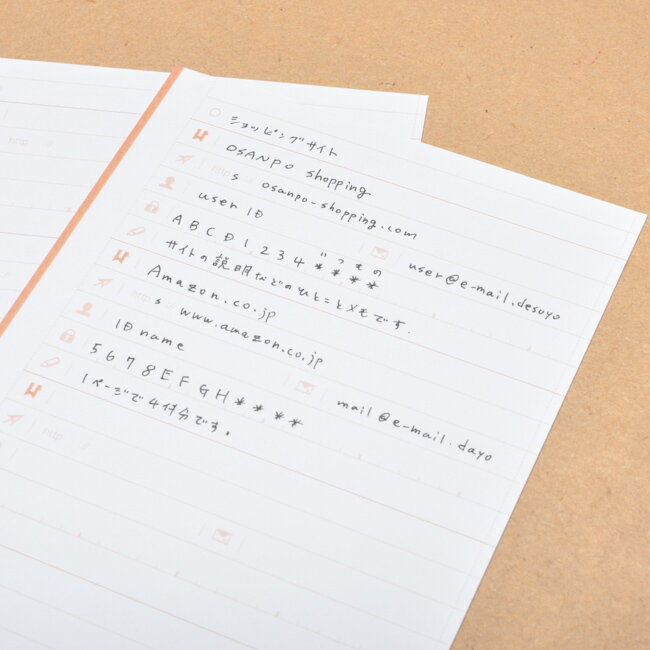 ショッピングサイト
OSANPO shopping
http s :// osanpo-shopping.com
user ID user@e-mail.desuyo
ABCD1234**** "つもの
サイトの説明などのひとことメモです.
Amazon.co.jp
http s :// www.amazon.co.jp
ID name mail@e-mail.dayo
5678EFGH****
1ページで4件分です。
http ://